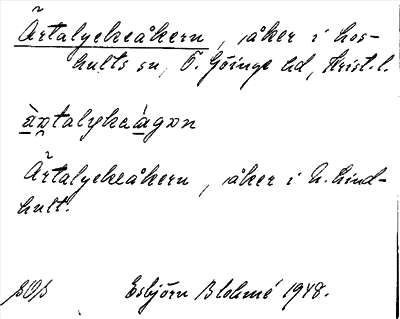 Ärtalyckeåkern, åker i Los-
hults sn, Ö. Göinge hd, Krist. l.
Ärtalyckeåkern, åker i N. Lind-
hult.
Esbjörn Blohmé 1948.